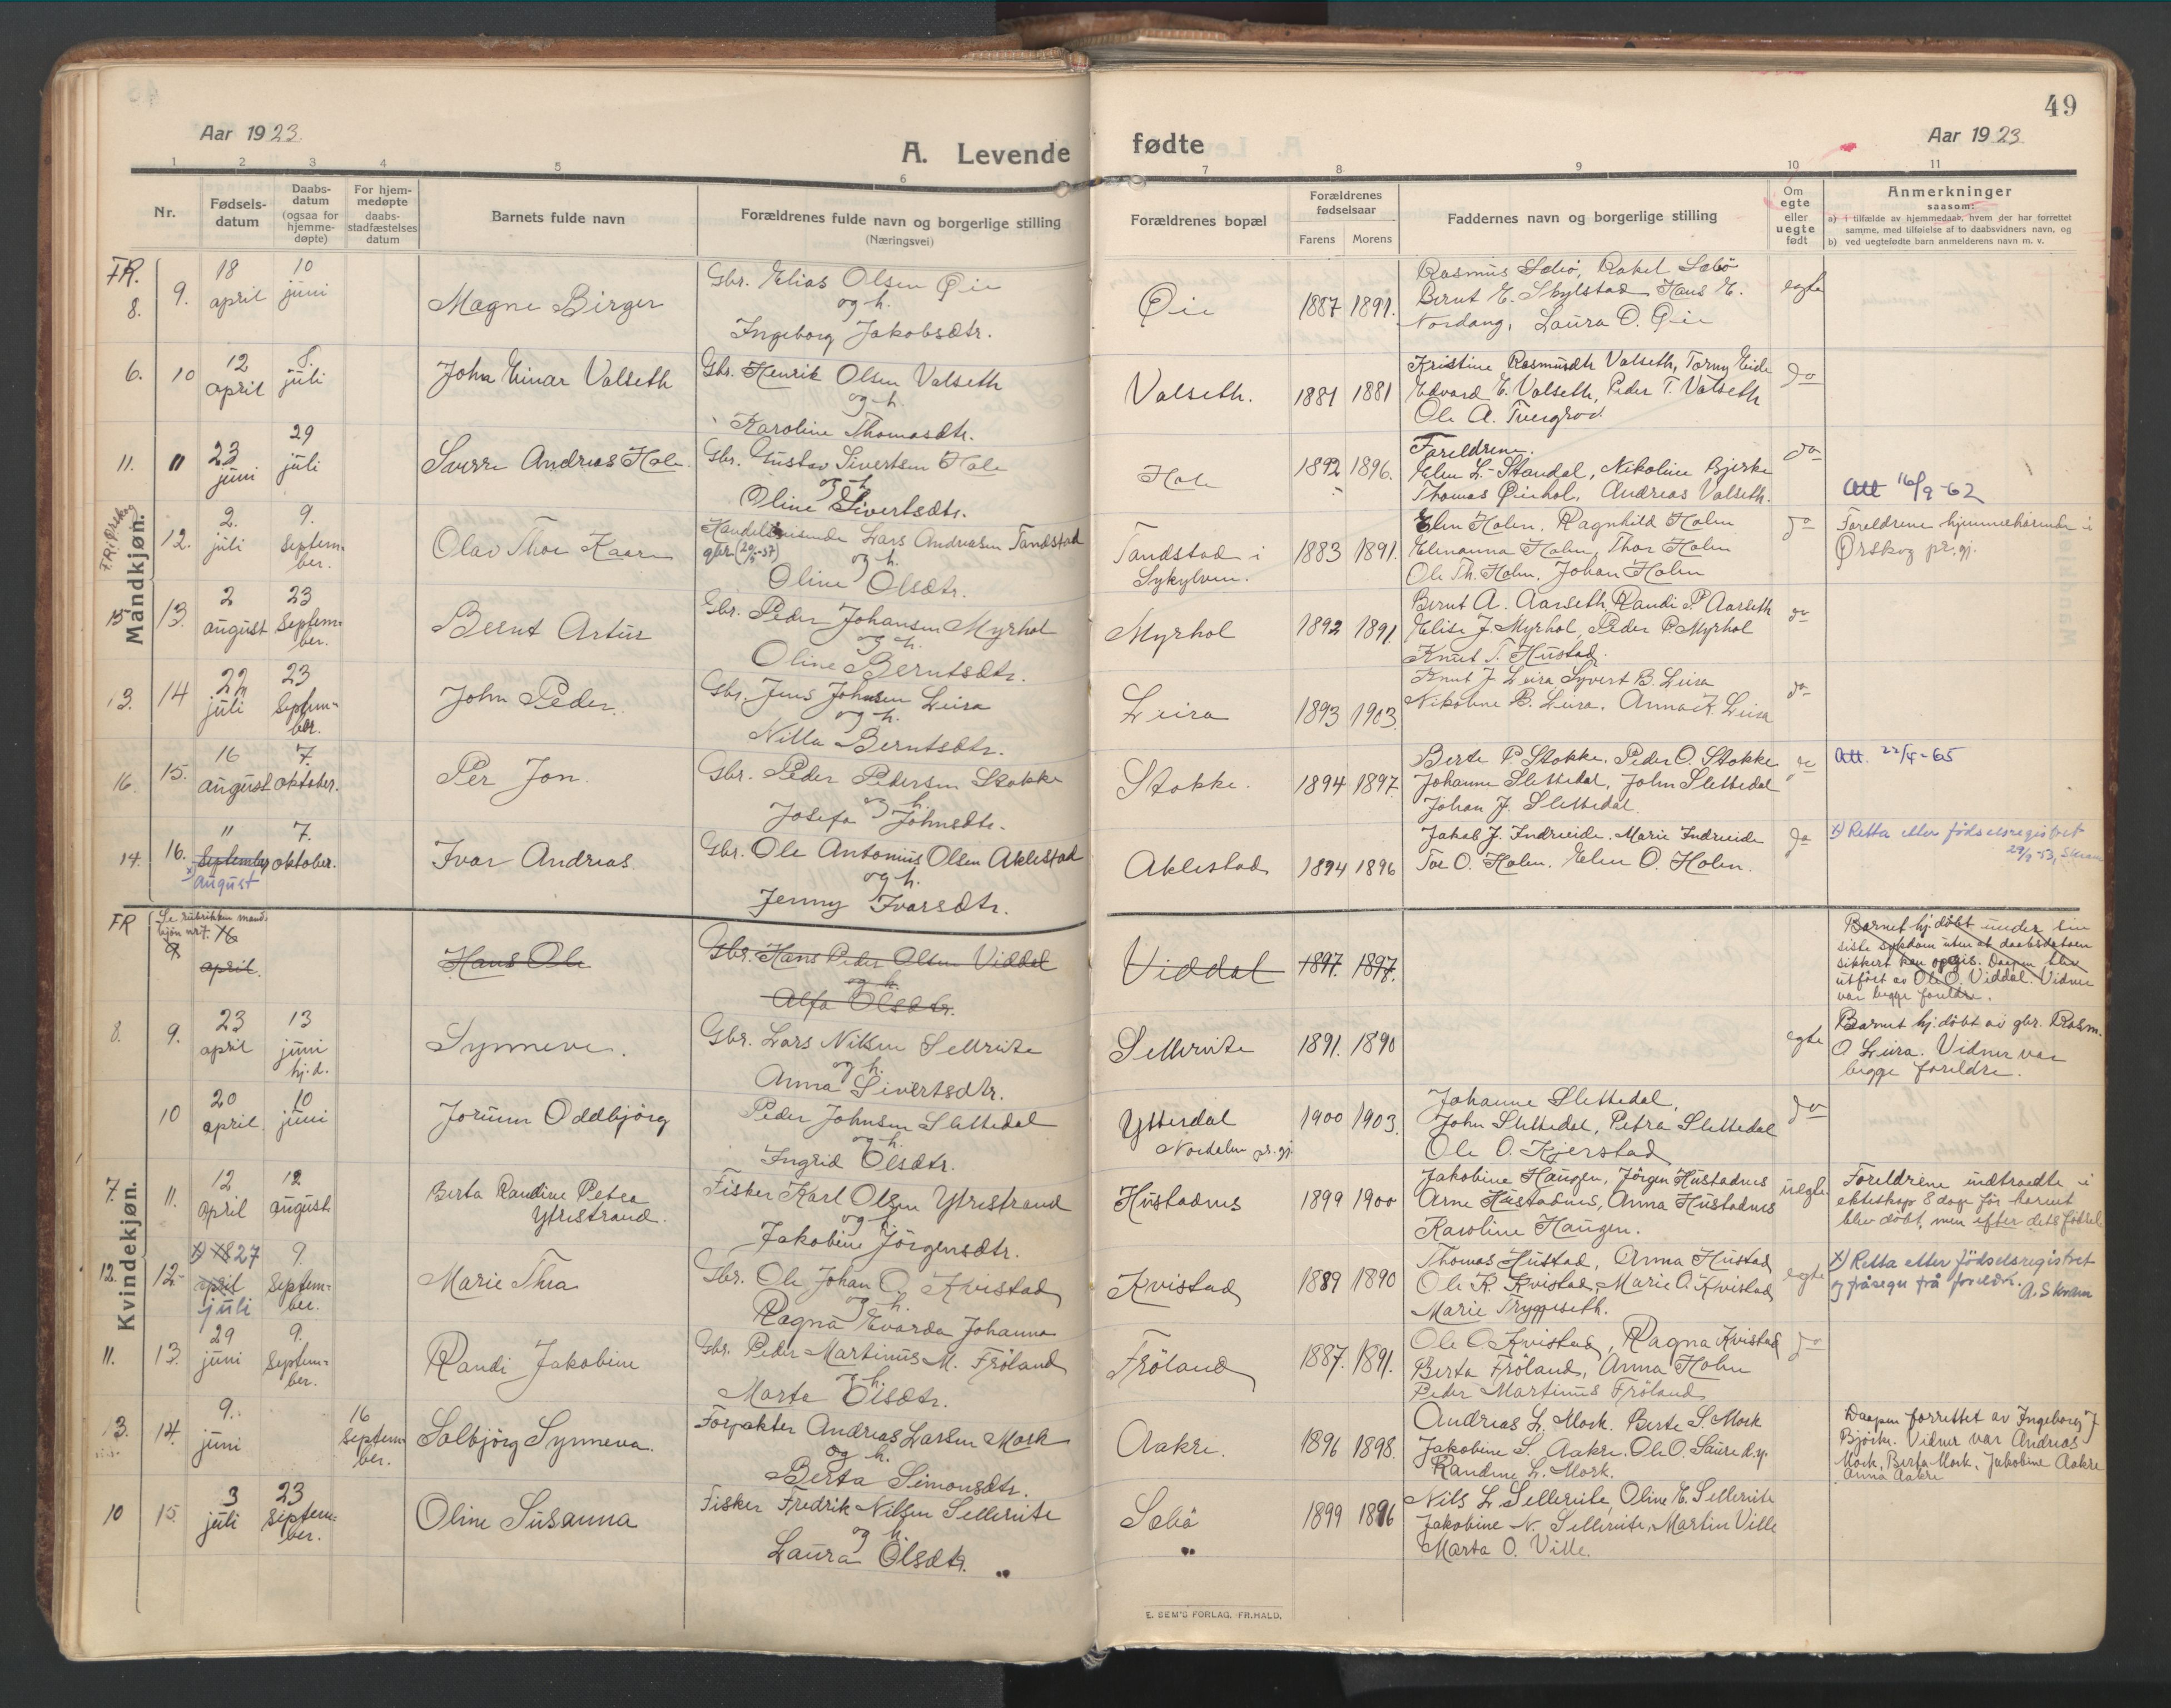 49
Aar 1923.
A. Levende
fødte
Aar 1923
1 2 3 4 5 6 7 8 9 10 11
Nr.
Fødsels-
datum
Daabs-
datum
(ogsaa for
hjemme-
døpte)
For hjem-
medøpte
daabs-
stadfæstelses
datum
Barnets fulde navn
Forældrenes fulde navn og borgerlige stilling
(Næringsvei)
Forældrenes bopæl
Forældrenes
fødselsaar
Farens Morens
Faddernes navn og borgerlige stilling
Om
egte
eller
uegte
født
Anmerkninger
saasom:
a) i tilfælde av hjemmedaab, hvem der har forrettet
samme, med tilføielse af to daabsvidners navn, og
b) ved uegtefødte barn anmelderens navn m. v.
Mandkjøn.
FR.
8. 9. 18 april 10 juni
Magne Birger
Gbr. Elias Olsen Øie
og h.
Ingeborg Jakobsdtr.
Øie
1887 1891.
Rasmus Sæbö, Rakel Sæbö
Bernt E. Skylstad, Hans E.
Nordang, Laura O. Øie
egte
6. 10 12 april 8. juli
John Einar Valseth
Gbr. Henrik Olsen Valseth
og h.
Karoline Thomasdtr.
Valseth.
1881 1881
Kristine Rasmusdtr Valseth, Torny Eide
Edvard E. Valseth, Peder T. Valseth
Ole A. Tvergrov.
do
11. 11 23 juni 29 juli
Sverre Andreas Hole.
Gbr. Gustav Sivertsen Hole
og h.
Oline Sivertsdtr.
Hole
1892 1896.
Foreldrene.
Elen L. Standal, Nikoline Bjerke
Thomas Øiehol, Andreas Valseth.
do
Att 16/9-62
FR i Ørskog
12. 2. juli 9. septem-
ber.
Olav Thor Kaare
Handelsreisende Lars Andreasen Tandstad
gbr
og h.
Oline Olsdtr.
Tandstad i
Sykylven.
1883 1891.
Elen Holen. Ragnhild Holen
Elenanna Holen, Thor Holen
Ole Th. Holen. Johan Holen
do
Foreldrene hjemmehörende i
Ørskog pr.gj.
15 13. 2 august 23 septem-
ber.
Bernt Artur
Gbr. Peder Johansen Myrhol
og h.
Oline Berntsdtr.
Myrhol
1892 1891.
Bernt A. Aarseth, Randi P Aarseth
Elise J. Myrhol, Peder P. Myrhol
Knut T. Hustad.
do
13. 14 22 juli 23 septem-
ber.
John Peder.
Gbr. Jens Johnsen Leira
og h.
Nilla Berntsdtr.
Leira
1893 1903.
Knut J Leira Syvert B. Leira
Nikoline B. Leira. Anna K. Leira
do
16. 15. 16 august 7. oktober.
Per Jon.
Gbr. Peder Pedersen Stokke
og h.
Josefa Johnsdtr.
Stokke.
1894 1897.
Berte P. Stokke. Peder O. Stokke
Johanne Slettedal, John Slettedal
Johan J. Slettedal
do
Att. 22/4-65
14. 16. 11 september oktober. 7.
x) august
Ivar Andreas.
Gbr. Ole Antonius Olsen Aklestad
og h.
Jenny Ivarsdtr.
Aklestad
1894 1896
Jakob J. Indreeide. Marie Indreeide
Tor O. Holen. Elen O. Holen.
do
x) Retta etter fødselsregistret
29/9-53, Skram
Kvindekjøn.
FR
Se rubrikken mand-
kjøn nr 7.
9 16 april.
Hans Ole
Gbr. Hans Peder Olsen Viddal
og h.
Alfa Olsdtr.
Viddal
1897. 1897.
Barnet hj.döbt under sin
siste sykdom uten at daabsdatoen
sikkert kan opgis. Daapen blev
utfört av Ole O. Viddal. Vidner
var begge foreldre.
8. 9. 23 april 13 juni
hj.d.
Synneve.
Gbr. Lars Nilsen Sellereite
og h.
Anna Sivertsdtr.
Sellereite
1891. 1890
egte
Barnet hj.döbt av gbr. Rasm.
O Leira. Vidner var
begge foreldre.
10 20 april. 10 juni
Jorunn Oddbjörg
Peder Johnsen Slettedal
og h.
Ingrid Olsdtr.
Ytterdal
Nordalen pr.gj.
1900 1903.
Johanne Slettedal,
John Slettedal, Petra Slettedal
Ole O. Kjerstad
do
7. 11. 12 april 12 august
Berta Randine Petra
Ytrestrand.
Fisker Karl Olsen Ytrestrand
og h.
Jakobine Jörgensdtr.
Hustadnes
1899 1900
Jakobine Haugen, Jörgen Hustadnes
Arne Hustadnes, Anna Hustadnes
Karoline Haugen.
uegte
Foreldrene indtraadte i
ekteskap 8 dage för barnet
blev döbt, men efter dets födsel
12. 12. x) 18 27 april juli 9. septem-
ber.
Marie Thea
Gbr. Ole Johan O. Kvistad
og h.
Ragna Evarda Johanna
Kvistad
1889 1890
Thomas Hustad, Anna Hustad
Ole K. Kvistad, Marie O. Kvistad
Marie Tryggeseth.
egte
x) Retta etter födselsregistret
og fråsegn frå foreldri.
A. Skram
11. 13. 29 juni 9. septem-
ber.
Randi Jakobine
Gbr. Peder Martinus M. Fröland
og h.
Marte Olsdtr.
Fröland
1887. 1891.
Ole O. Kvistad, Ragna Kvistad
Berta Fröland, Anna Holen
Peder Martinus Fröland
do
13. 14. 9. juni 16 septem-
ber.
Solbjörg Synneva.
Forpakter Andreas Larsen Mork
og h.
Berta Simonsdtr.
Aakre.
1896 1898.
Andreas L. Mork. Berte S. Mork
Jakobine S. Aakre. Ole O. Saure d.y.
Randine L. Mork.
Daapen forrettet av Ingeborg J
Björke. Vidner var Andreas
Mork, Berta Mork, Jakobine Aakre
Anna Aakre
10 15. 3 juli 23 septem-
ber.
Oline Susanna
Fisker Fredrik Nilsen Sellereite
og h.
Laura Olsdtr.
Sæbö
1899 1896
Nils L. Sellereite, Oline E. Sellereite
Jakobine N. Sellereite, Martin Ville
Marta O. Ville.
E. SEM'S FORLAG, FR.HALD.